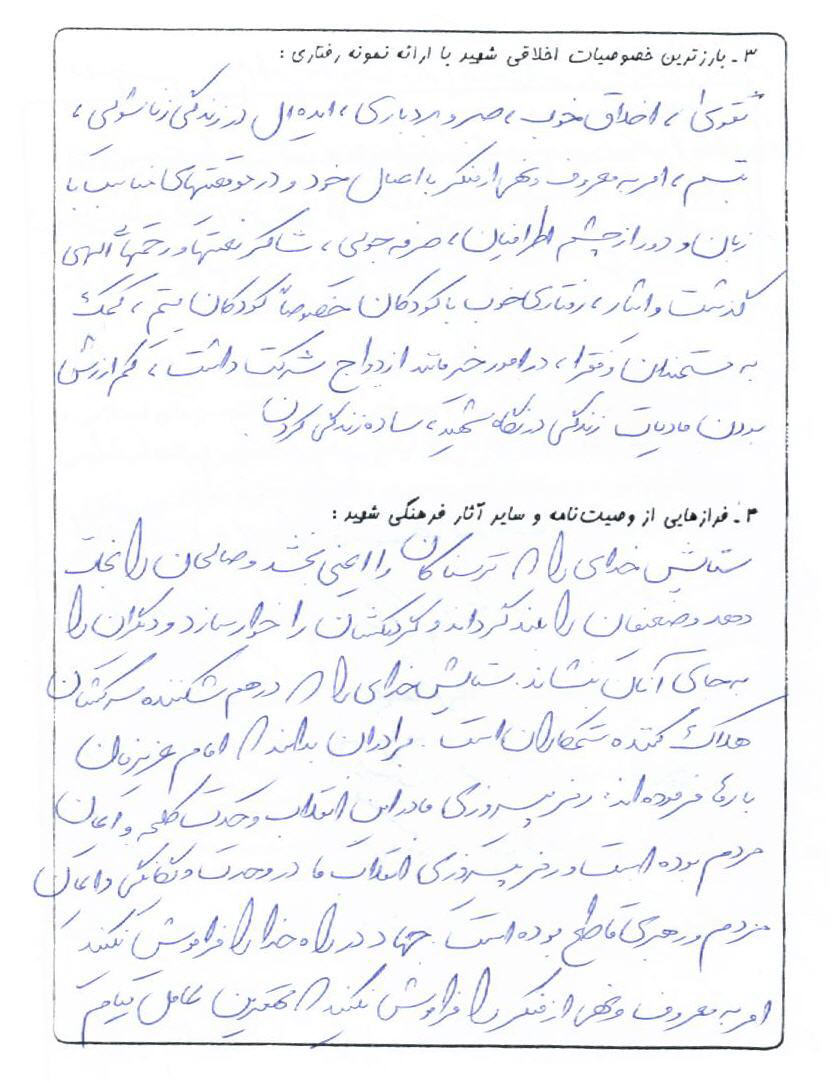 ۳ـ بارزترین خصوصیات اخلاقی شهید با ارائه نمونه رفتاری :
تقوی، اخلاق خوب، صبر و بردباری، ایده‌ال در زندگی زناشوئی،
تبسم، امر به معروف و نهی از منکر با اعمال خود و در موقعیتهای مناسب با
زبان و دور از چشم اطرافیان، صرفه جویی، شاکر نعمتها و رحمتهای الهی
گذشت و ایثار، رفتاری خوب با کودکان خصوصاً کودکان یتیم، کمک
به مستمندان و فقرا، در امور خیر مانند ازدواج شرکت داشت، کم ارزش
بودن مادیات زندگی در نگاه شهید، ساده زندگی کردن.
۴ـ فرازهایی از وصیت‌نامه و سایر آثار فرهنگی شهید :
ستایش خدای را که ترسناکان را ایمنی بخشد و صالحان را نجات
دهد و ضعیفان را بلند گرداند و گردنکشان را خوار سازد و دیگران را
به جای آنان بنشاند. ستایش خدای را که درهم شکننده سرکشان
هلاک کننده ستمکاران است. برادران بدانند که امام عزیزمان
بارها فرموده‌اند: رمز پیروزی ما در این انقلاب وحدت کلمه و ایمان
مردم بوده است و رمز پیروزی انقلاب ما در وحدت و یگانگی و ایمان
مردم و رهبری قاطع بوده است. جهاد در راه خدا را فراموش نکنند
امر به معروف و نهی از منکر را فراموش نکنید که بهترین عامل قیام